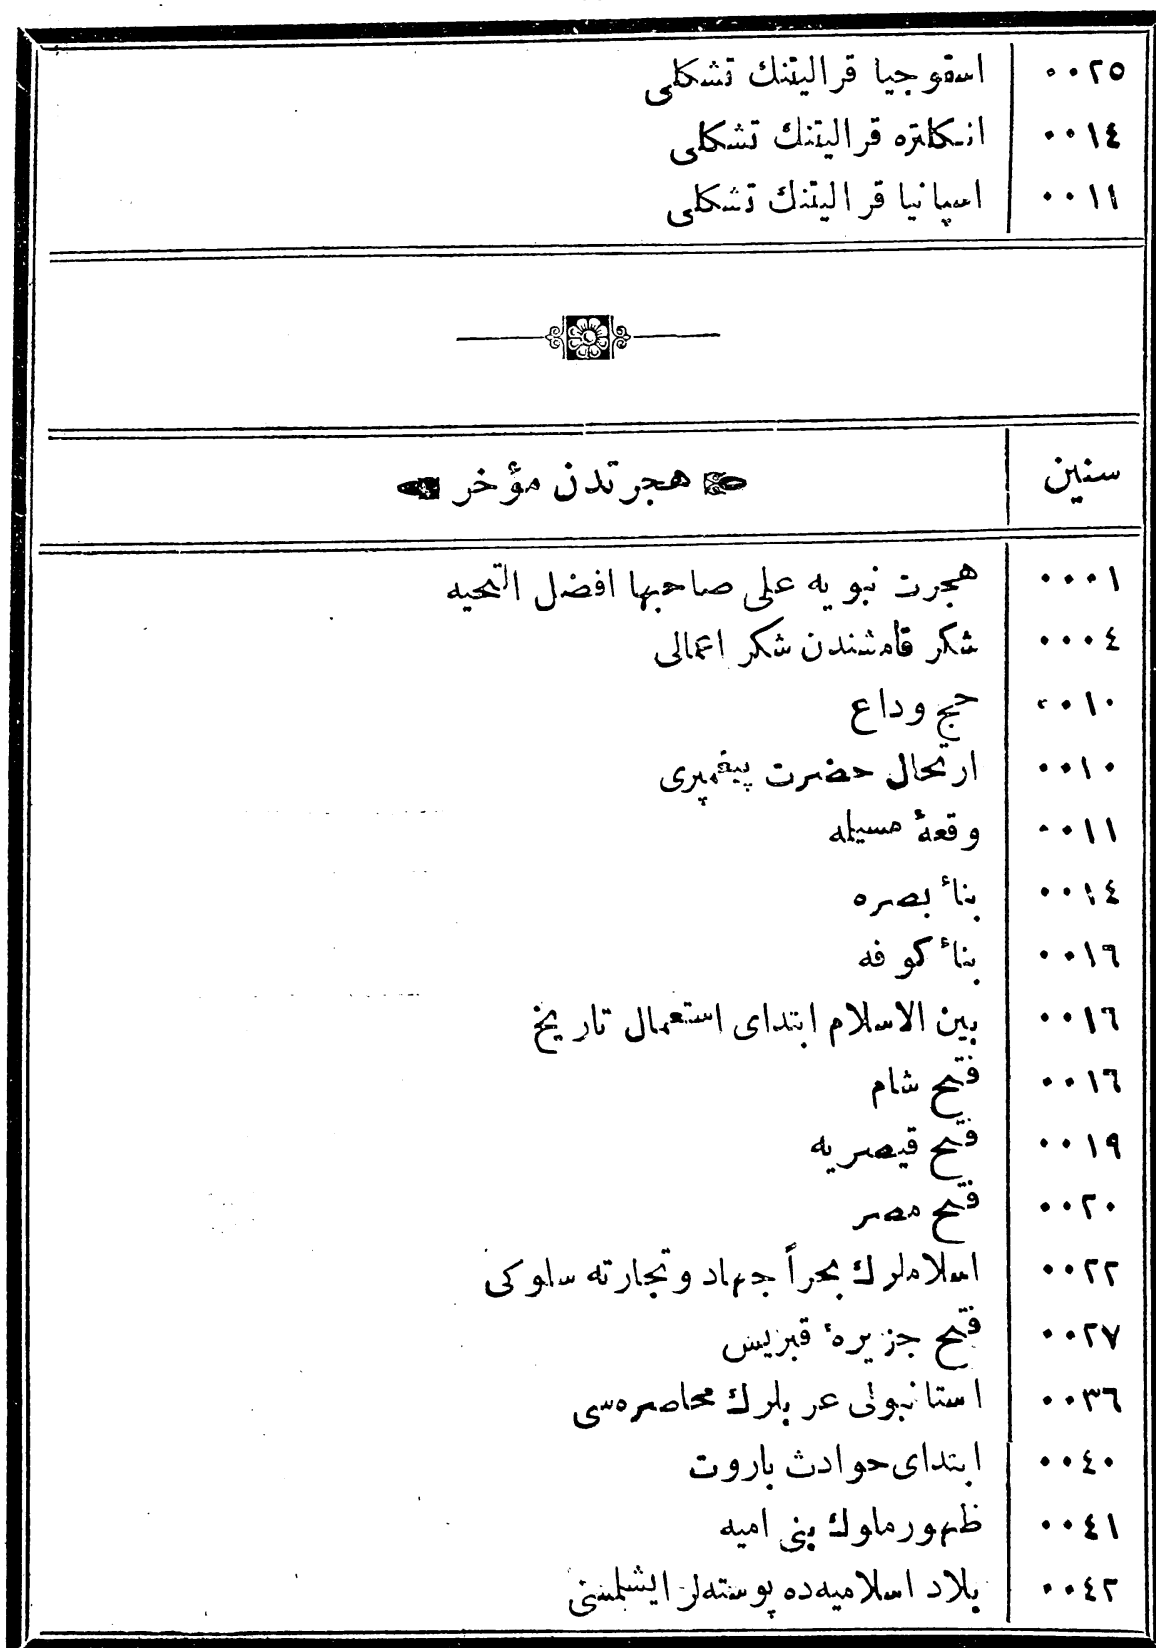 ٠٠٢٥ اسقوجيا قراليتنك تشكلى
٠٠١٤ انكلتره قراليتنك تشكلى
٠٠١١ اسپانيا قراليتنك تشكلى
سنين هجرتدن مؤخر
٠٠٠١ هجرت نبويه على صاحبها افضل التحيه
٠٠٠٤ شكر قامشندن شكر اعمالى
٠٠١٠ حج وداع
٠٠١٠ ارتحال حضرت پيغمبرى
٠٠١١ وقعهٔ مسيلمه
٠٠١٤ بناٴ بصره
٠٠١٦ بناٴ كوفه
٠٠١٦ بين الاسلام ابتداى استعمال تاريخ
٠٠١٦ فتح شام
٠٠١٩ فتح قيصريه
٠٠٢٠ فتح مصر
٠٠٢٢ اسلاملرك بحراً جهاد و تجارته سلوكى
٠٠٢٧ فتح جزيرهٔ قبريس
٠٠٣٦ استانبولى عربلرك محاصره‌سى
٠٠٤٠ ابتداى حوادث باروت
٠٠٤١ ظهور ملوك بنى اميه
٠٠٤٢ بلاد اسلاميه‌ده پوسته‌لر ايشلمسى